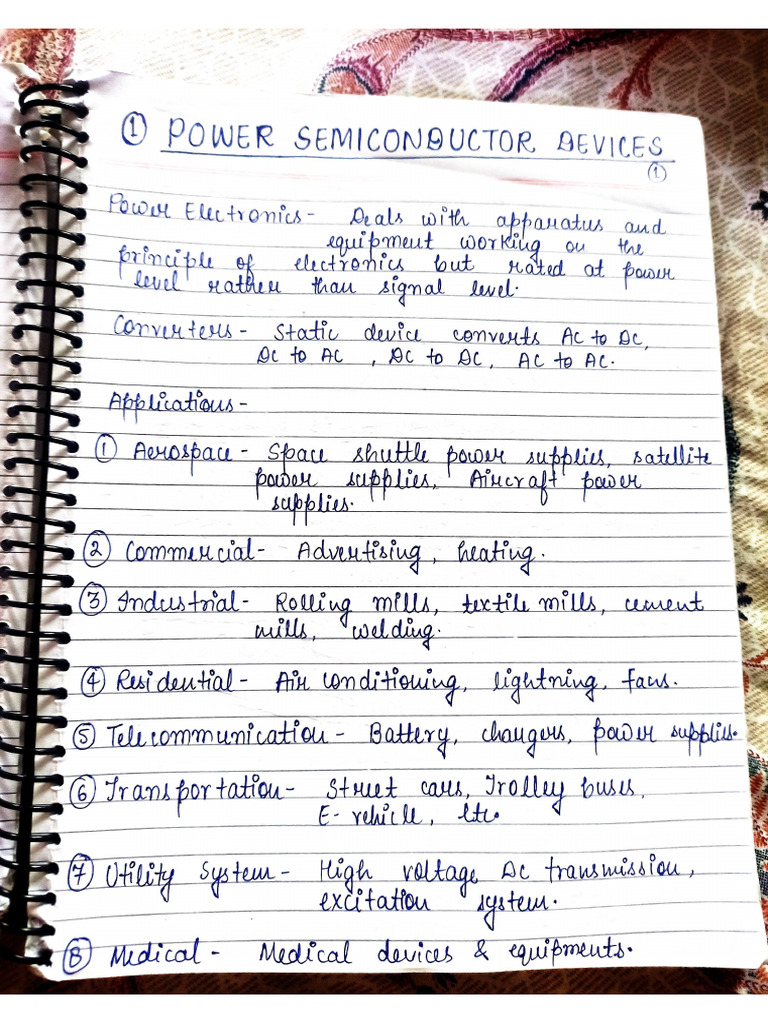 ① POWER SEMICONDUCTOR DEVICES
①
Power Electronics - Deals with apparatus and
equipment working on the
principle of electronics but rated at power
level rather than signal level.
Converters - Static device converts AC to DC,
DC to AC , DC to DC, AC to AC.
Applications -
① Aerospace - Space shuttle power supplies, satellite
power supplies, Aircraft power
supplies.
② Commercial - Advertising, heating.
③ Industrial - Rolling mills, textile mills, cement
mills, welding.
④ Residential - Air conditioning, lightning, fans.
⑤ Telecommunication - Battery, chargers, power supplies.
⑥ Transportation - Street cars, Trolley buses,
E-vehicle, etc.
⑦ Utility System - High voltage DC transmission,
excitation system.
⑧ Medical - Medical devices & equipments.